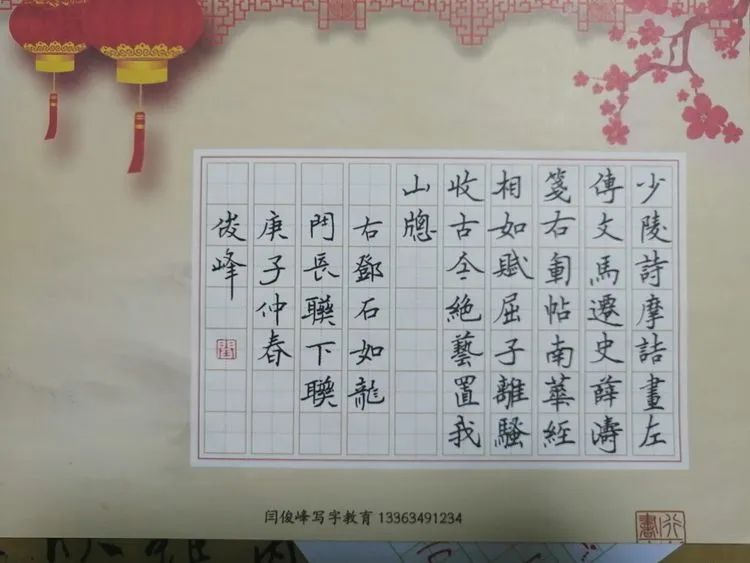 少陵詩摩詰畫左
傳文馬遷史薛濤
箋右軍帖南華經
相如賦屈子離騷
收古今絶藝置我
山牕
右鄧石如龍
門長聯下聯
庚子仲春
俊峰
閆俊峰写字教育 13363491234